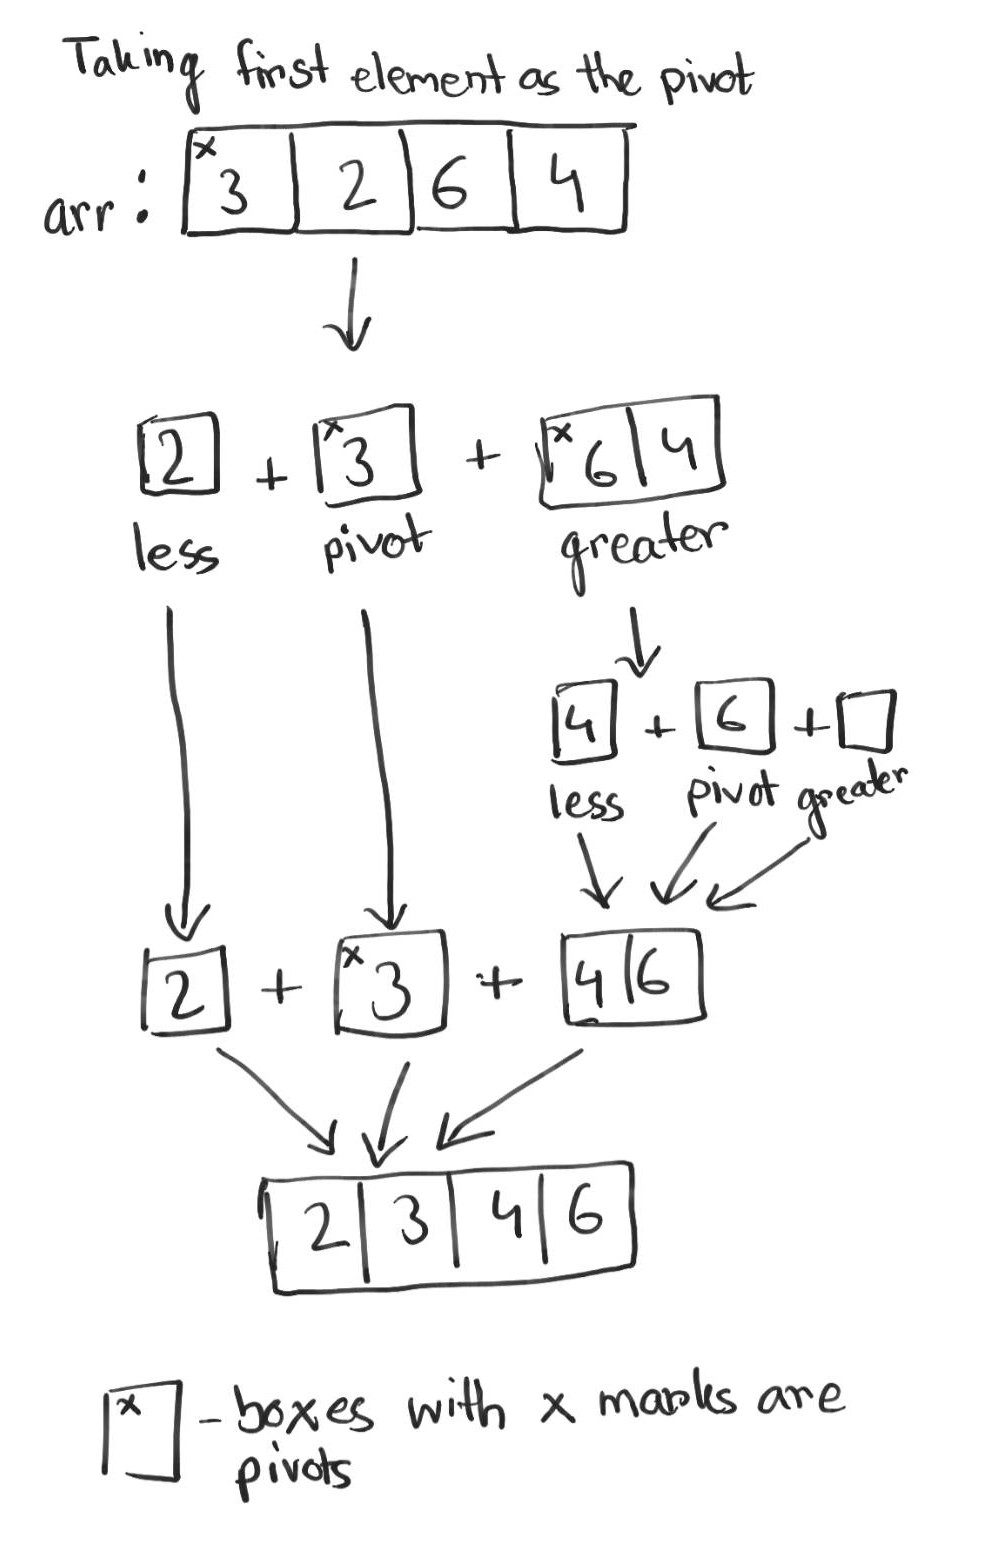 Taking first element as the pivot
arr: x 3 2 6 4
2 + x 3 + x 6 4
less pivot greater
4 + 6 +
less pivot greater
2 + x 3 + 4 6
2 3 4 6
x - boxes with x marks are
pivots